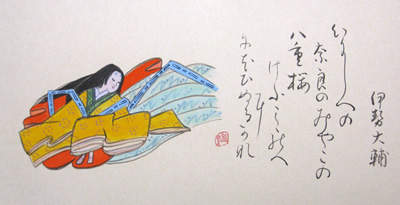 伊勢大輔
いにしへの
奈良のみやこの
八重桜
けふこゝのへ
に
にほひぬるかな